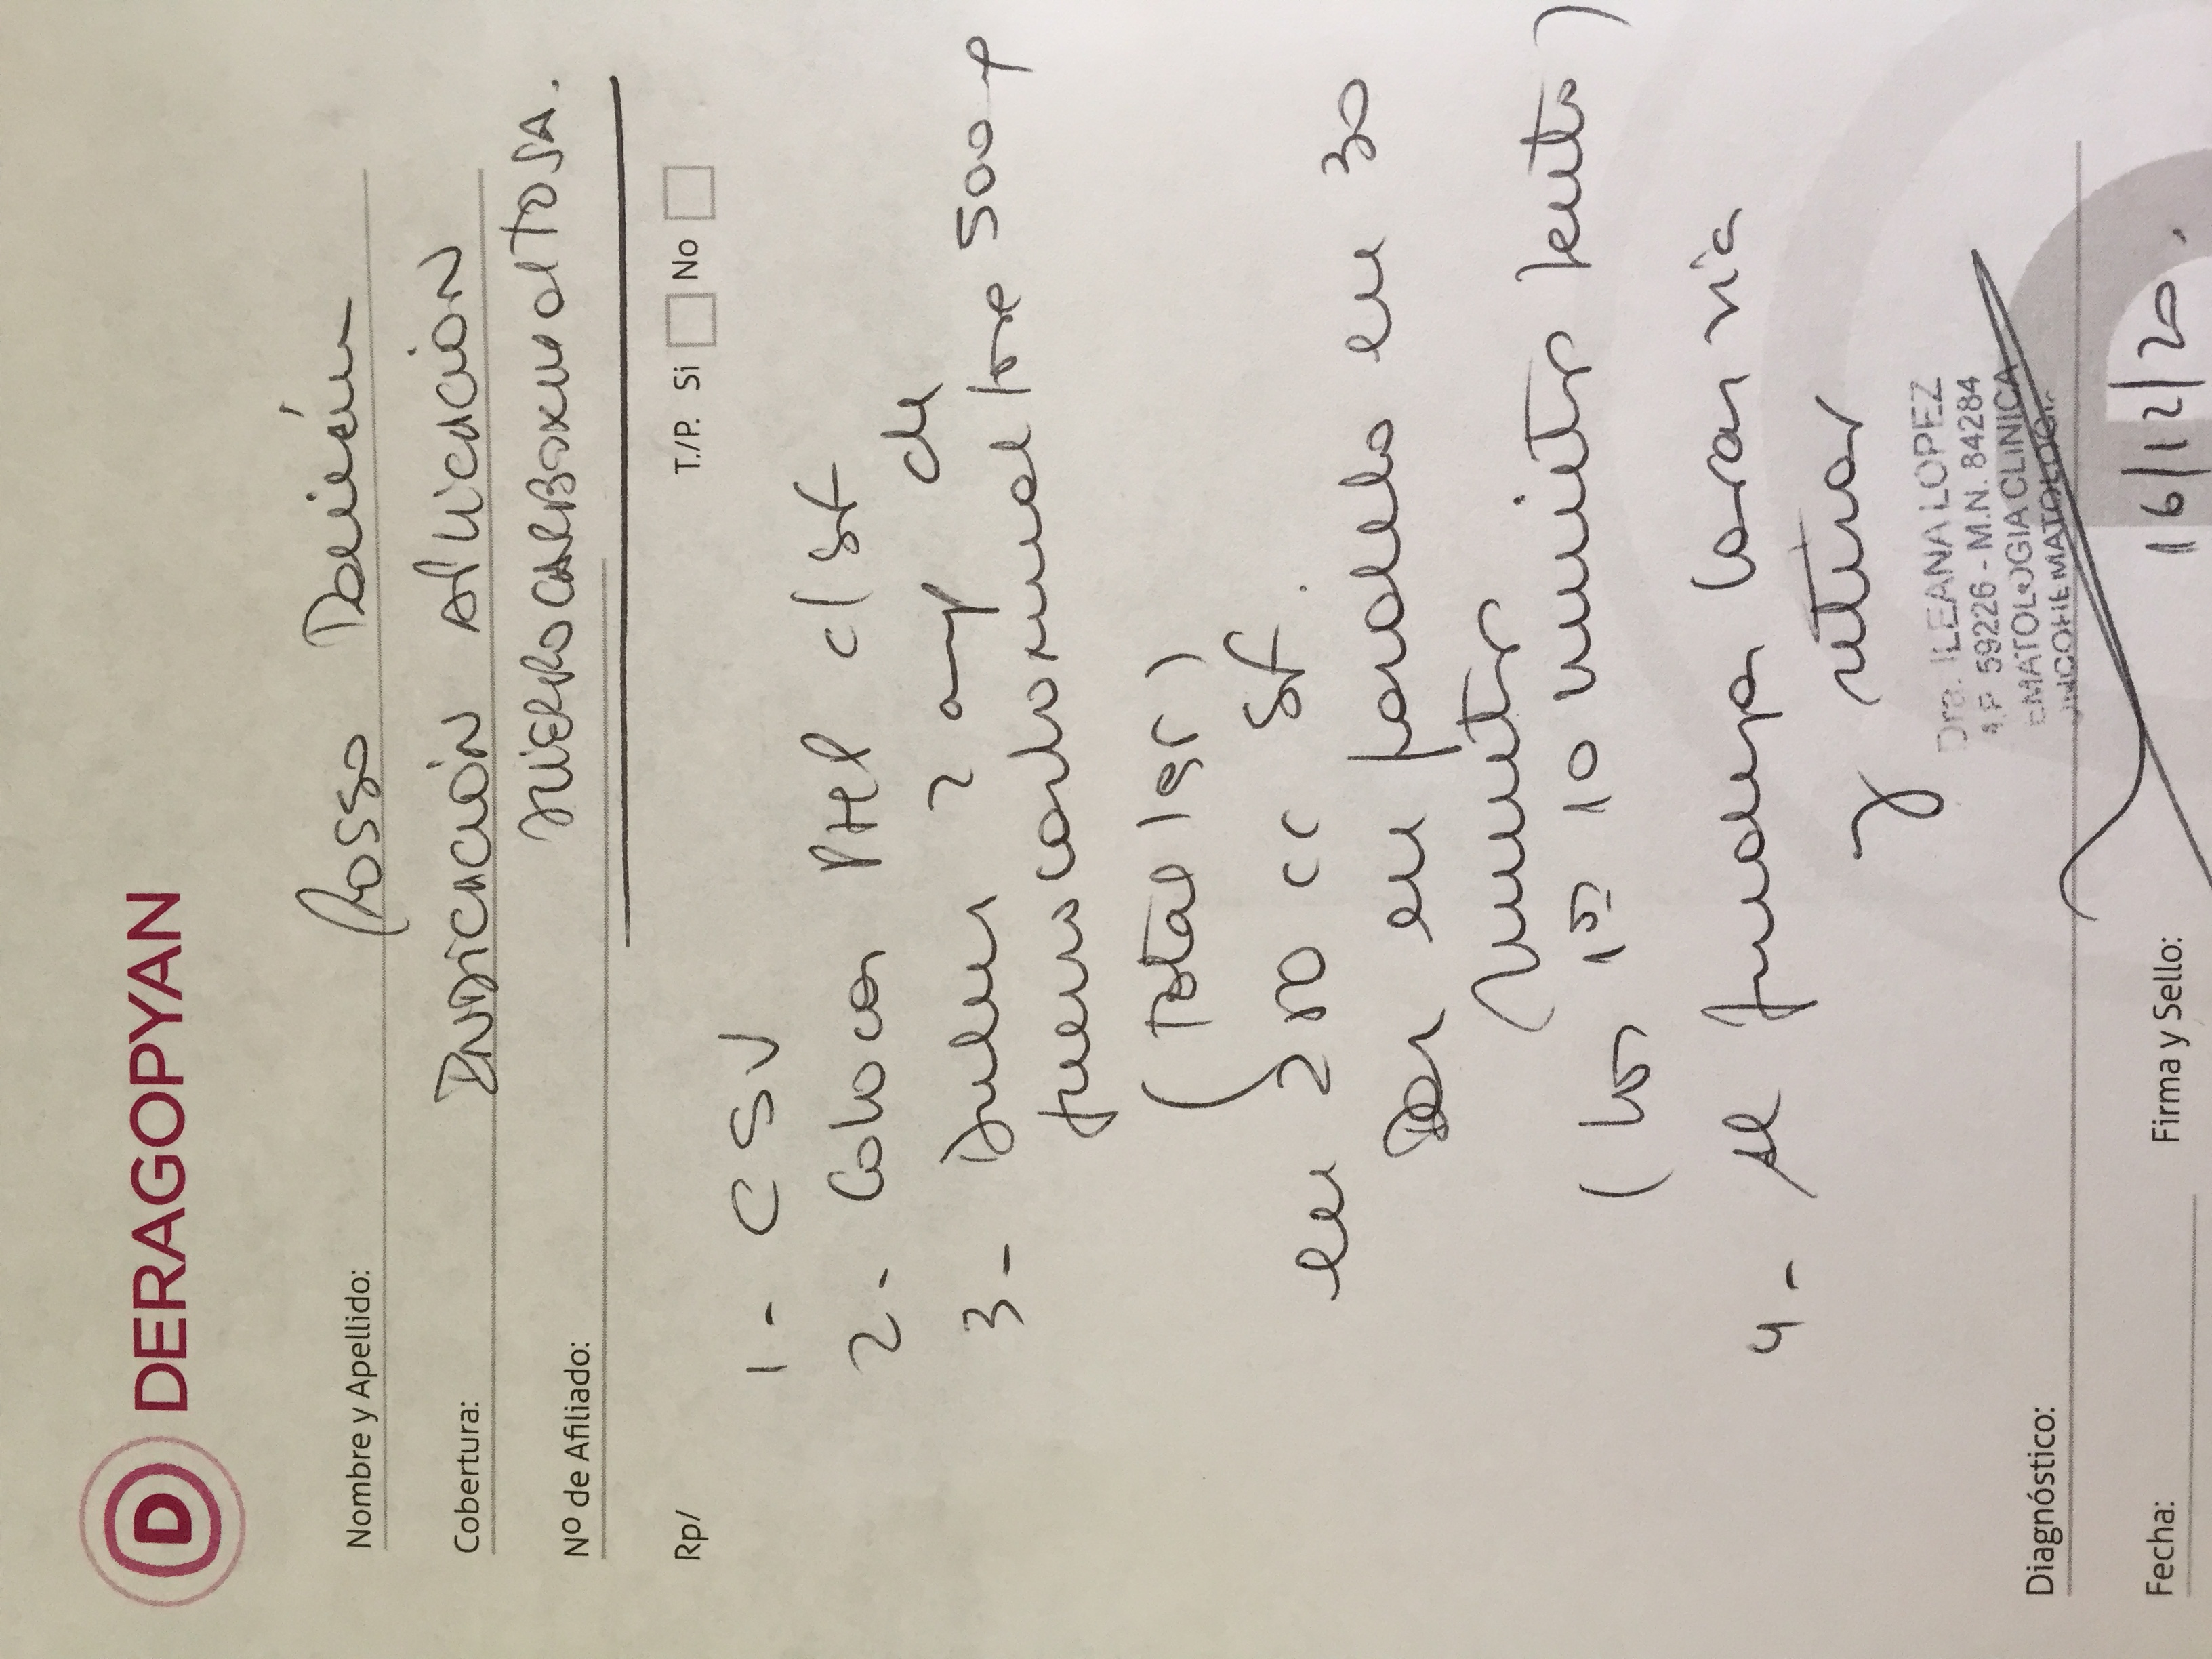 D DERAGOPYAN
Nombre y Apellido: Rosso Damián
Cobertura: INDICACIÓN APLICACIÓN
HIERROCARBOXIMALTOSA.
Nº de Afiliado:
Rp/ T./P. Si No
1- CSV
2- Colocar PHP c/ SF
3- Diluir 2 amp de
hierrocarboximaltosa 500
(Total 1gr)
en 250 cc SF.
Dar en paralelo en 30
minutos
(los 1os 10 minutos lento)
4- Al finalizar lavar vía
y retirar
Dra. ILEANA LOPEZ
M.P. 59226 - M.N. 84284
EMATOLOGIA CLINICA
ONCOHEMATOLOGI
Diagnóstico:
Fecha: Firma y Sello: 16/12/20.